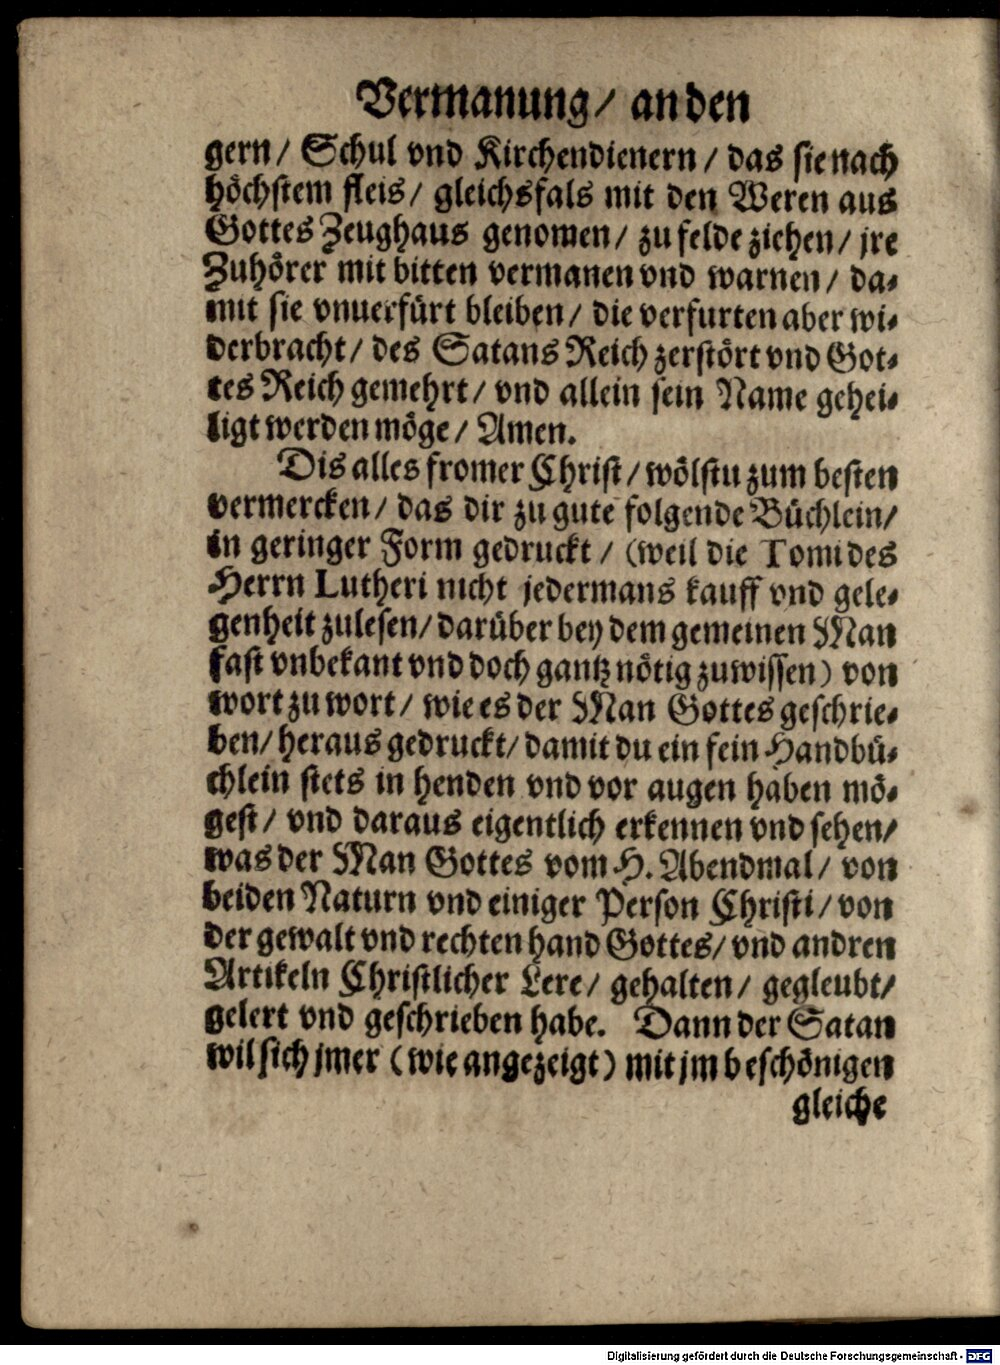 Vermanung/ an den
gern/ Schul vnd Kirchendienern/ das sie nach
höchstem fleis/ gleichsfals mit den Weren aus
Gottes Zeughaus genomen/ zu felde ziehen/ jre
Zuhörer mit bitten vermanen vnd warnen/ da-
mit sie vnuerfürt bleiben/ die verfurten aber wi-
derbracht/ des Satans Reich zerstört vnd Got-
tes Reich gemehrt/ vnd allein sein Name gehei-
ligt werden möge/ Amen.
Dis alles fromer Christ/ wölstu zum besten
vermercken/ das dir zu gute folgende Büchlein/
in geringer Form gedruckt/ (weil die Tomi des
Herrn Lutheri nicht jedermans kauff vnd gele-
genheit zulesen/ darüber bey dem gemeinen Man
fast vnbekant vnd doch gantz nötig zuwissen) von
wort zu wort/ wie es der Man Gottes geschrie-
ben/ heraus gedruckt/ damit du ein fein Handbü-
chlein stets in henden vnd vor augen haben mö-
gest/ vnd daraus eigentlich erkennen vnd sehen/
was der Man Gottes vom H. Abendmal/ von
beiden Naturn vnd einiger Person Christi/ von
der gewalt vnd rechten hand Gottes/ vnd andren
Artikeln Christlicher Lere/ gehalten/ gegleubt/
gelert vnd geschrieben habe. Dann der Satan
wil sich jmer (wie angezeigt) mit jm beschönigen
gleiche
Digitalisierung gefördert durch die Deutsche Forschungsgemeinschaft - DFG